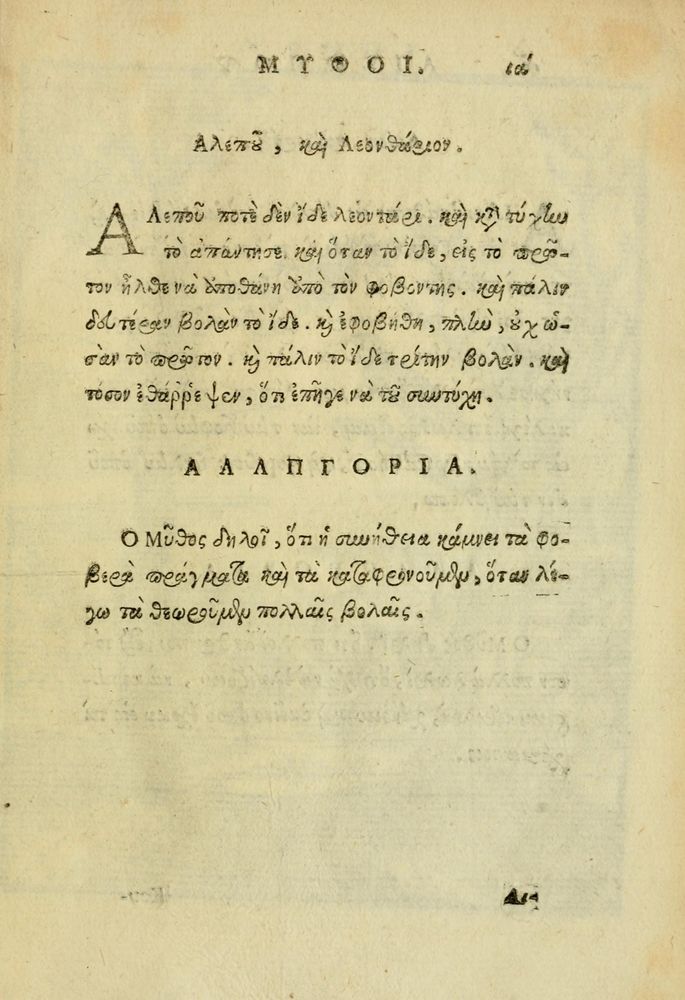 ΜΥΘΟΙ. ια΄
Αλεποῦ, καὶ Λεονθάριον.
ΑΛεποῦ ποτὲ δὲν ἶδε λεοντάρι. καὶ κατ τύχλω
τὸ ἀπάντησε. καὶ ὅταν τὸ ἶδε, εἰς τὸ πρῶ-
τον ἦλθε νὰ ἀποθάνῃ ἀπὸ τὸν φόβον της. καὶ πάλιν
δευτέραν βολὰν τὸ ἶδε. καὶ ἐφοβήθη, πλιὼ, οὐχ ὡ-
σὰν τὸ πρῶτον. καὶ πάλιν τὸ ἶδε τρίτην βολὰν. καὶ
τόσον ἐθάῤῥεψεν, ὅτι ἐπῆγε νὰ τοῦ συντύχῃ.
ΑΛΛΠΓΟΡΙΑ.
Ο Μῦθος δηλοῖ, ὅτι ἡ συνήθεια κάμνει τὰ φο-
βερὰ πράγματα καὶ τὰ καταφρονοῦμεν, ὅταν λέ-
γω τὰ θεωροῦμεν πολλαῖς βολαῖς.